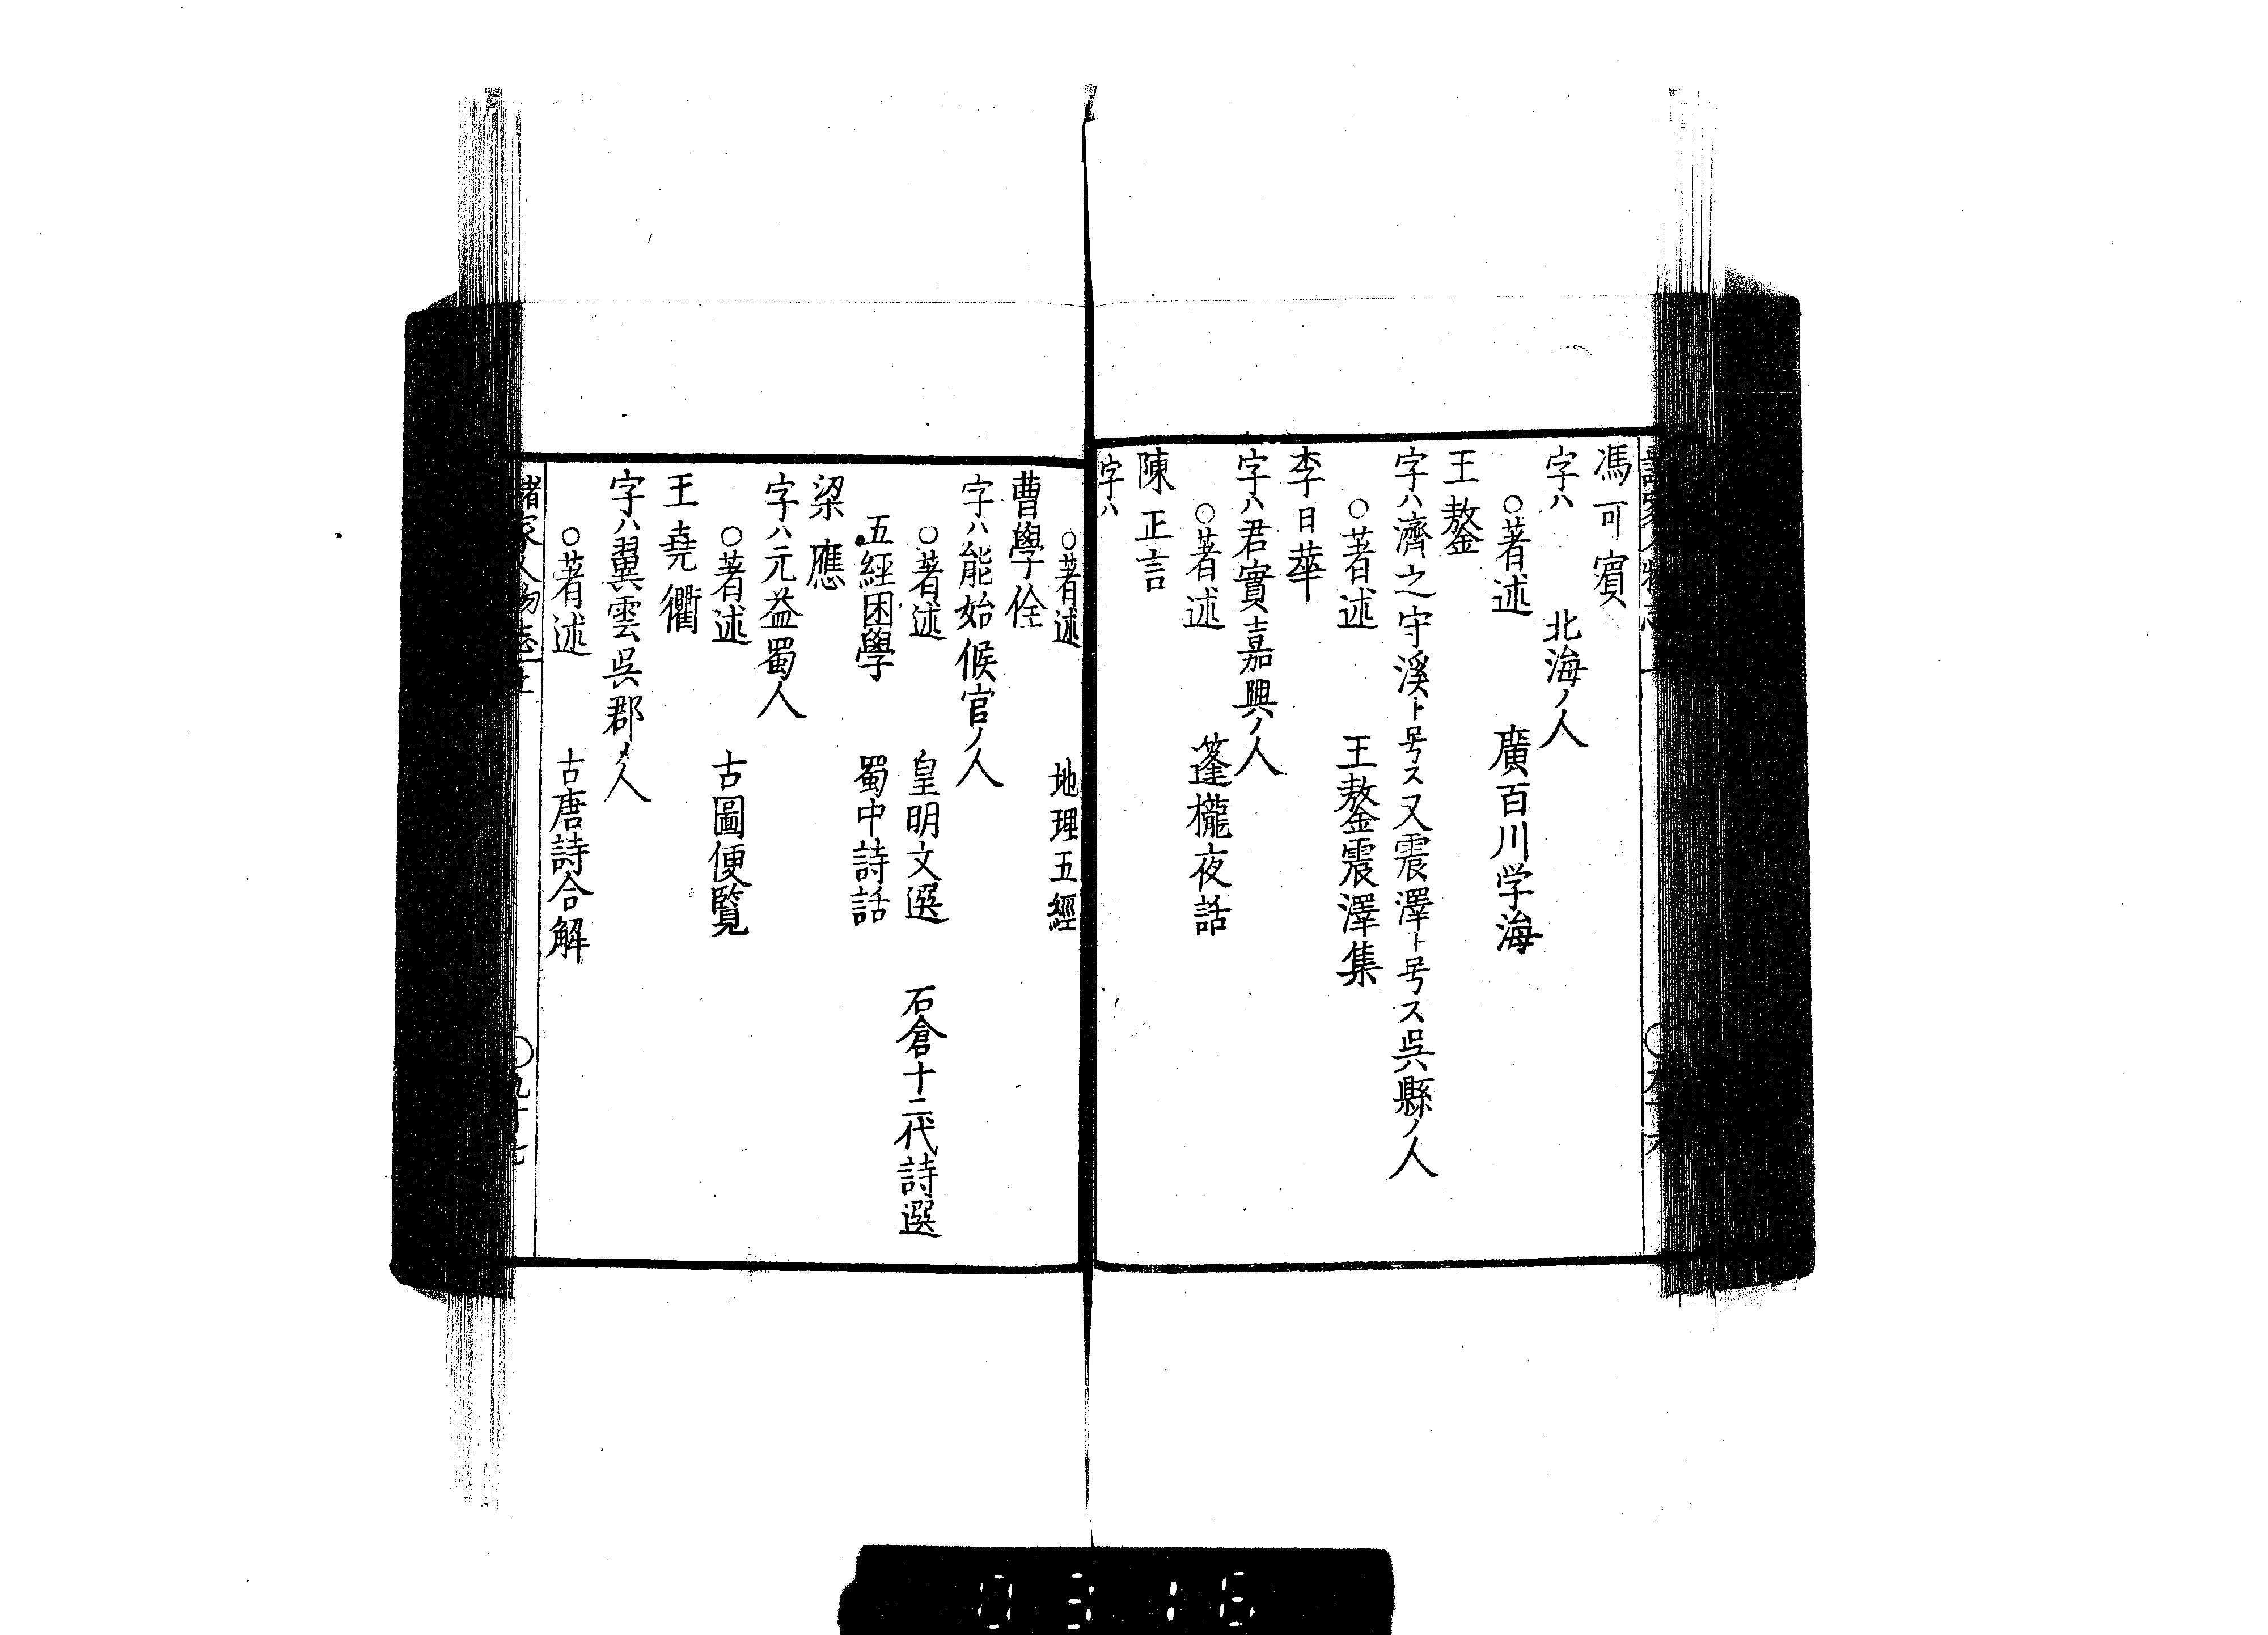 馮可賓
字ハ　　北海ノ人
○著述　　廣百川学海
王鏊
字ハ濟之守溪ト号ス又震澤ト号ス呉縣ノ人
○著述　　王鏊震澤集
李日華
字ハ君實嘉興ノ人
○著述　　蓬櫳夜話
陳正言
字ハ
○著述　　地理五經
曹學佺
字ハ能始候官ノ人
○著述　　皇明文選　石倉十二代詩選
五經困學　　蜀中詩話
梁應
字ハ元益蜀人
○著述　　古圖便覧
王堯衢
字ハ翼雲呉郡ノ人
○著述　　古唐詩合解
諸家人物志
0316